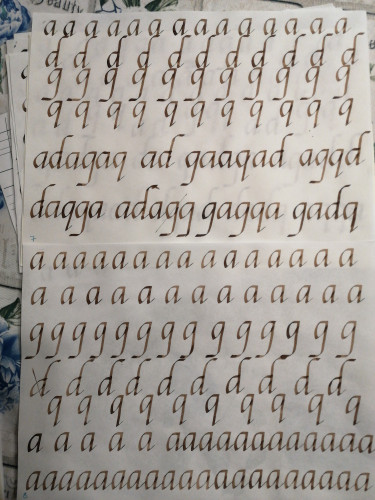 a a a a a a a a a a a a a a
d d d d d d d d d d d
g g g g g g g g g g g
q q q q q q q q q q q
adagaq ad gaaqad agqd
daqga adagg gagqa gadq
7
a a a a a a a a a a a a a a a
a a a a a a a a a a a a a
g g g g g g g g g g g g g g
d d d d d d d d d d
q q q q q q q q q q
a a a a a aaaaaaaaaaaaa
aaaaaaaaaaaaaaaaaaaa